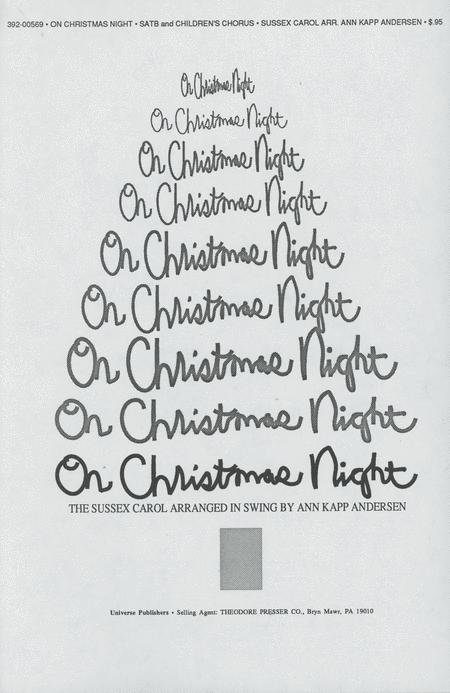 392-00569 • ON CHRISTMAS NIGHT • SATB and CHILDREN'S CHORUS • SUSSEX CAROL ARR. ANN KAPP ANDERSEN • $.95
On Christmas Night
On Christmas Night
On Christmas Night
On Christmas Night
On Christmas Night
On Christmas Night
On Christmas Night
On Christmas Night
On Christmas Night
THE SUSSEX CAROL ARRANGED IN SWING BY ANN KAPP ANDERSEN
Universe Publishers • Selling Agent: THEODORE PRESSER CO., Bryn Mawr, PA 19010